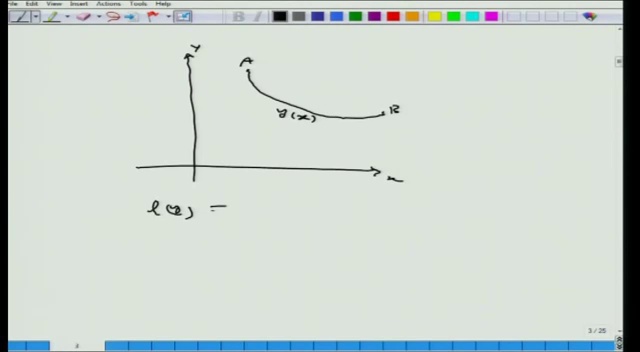 File Edit View Insert Actions Tools Help
Y
A
B
y(x)
x
l(y) =
3 / 25
3